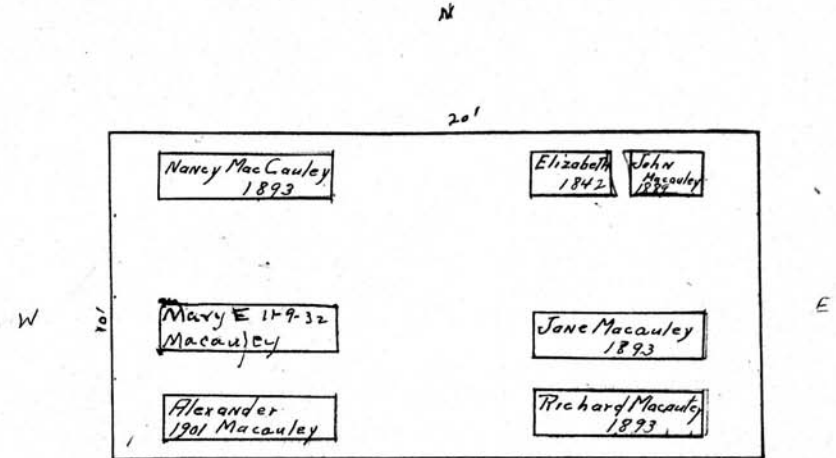 N
20'
Nancy MacCauley
1893
Elizabeth
1842
John
Macauley
W
Mary E 11-9-32
Macauley
Jane Macauley
1893
E
Alexander
1901 Macauley
Richard Macauley
1893